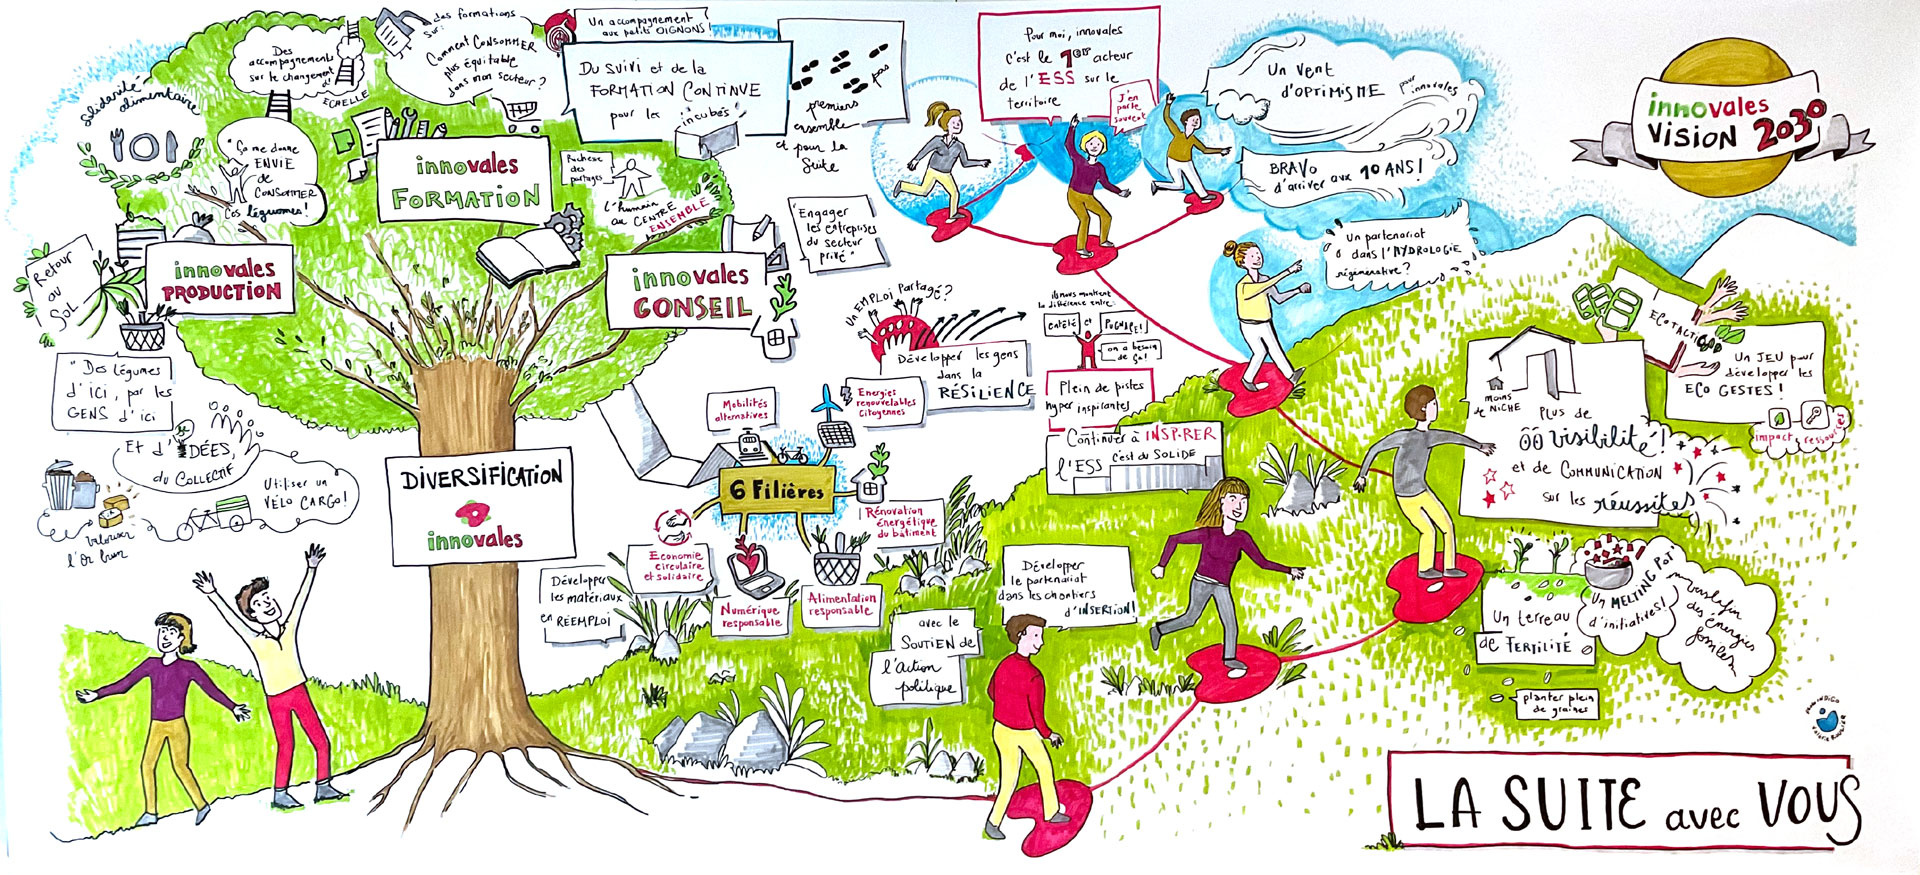 Solidarité
alimentaire
Des
accompagnements
sur le changement
d'
ECHELLE
des formations
sur:
Comment CONSOMMER
plus équitable
dans mon secteur?
Un accompagnement
aux petits OIGNONS!
Du suivi et de la
FORMATION CONTINUE
pour les incubés
premiers
pas
ensemble
et pour la
suite
"Ça me donne
ENVIE
de
CONSOMMER
ces légumes!
innovales
FORMATION
Richesse
des
partages
l'humain
au CENTRE
ENSEMBLE
Retour
au
SOL
innovales
PRODUCTION
innovales
CONSEIL
"Engager
les entreprises
du secteur
privé"
"Des légumes
d'ici, par les
GENS d'ici
Et d'IDÉES,
du COLLECTIF
Utiliser un
VÉLO CARGO!
valoriser
l'Or brun
DIVERSIFICATION
innovales
Pour moi, innovales
c'est le 1er acteur
de l'ESS sur le
territoire
J'en
parle
souvent
Un vent
d'OPTIMISME
pour
innovales
BRAVO
d'arriver aux 10 ANS!
Un partenariat
dans l'HYDROLOGIE
régénérative?
innovales
VISION 2030
Un EMPLOI Partagé?
Développer les gens
dans la
RÉSILIENCE
ils nous montrent
la différence entre:
et
on a besoin
de ça!
Plein de pistes
hyper inspirantes
Continuer à INSPIRER
l'ESS
c'est du SOLIDE
Mobilités
alternatives
Energies
renouvelables
Citoyennes
6 Filières
Rénovation
énergétique
du bâtiment
Economie
circulaire
et solidaire
Numérique
responsable
Alimentation
responsable
Développer
les matériaux
en RÉEMPLOI
avec le
SOUTIEN de
l'action
politique
Développer
le partenariat
dans les chantiers
d'INSERTION!
ECOTACTIC
Un JEU pour
développer les
ECO GESTES!
impact
ressources
moins
de NICHE
PLUS DE
visibilité!
et de COMMUNICATION
sur les réussites
Un terreau
de FERTILITÉ
Un MELTING POT
d'initiatives!
des énergies
fossiles
planter plein
de graines
LA SUITE avec VOUS